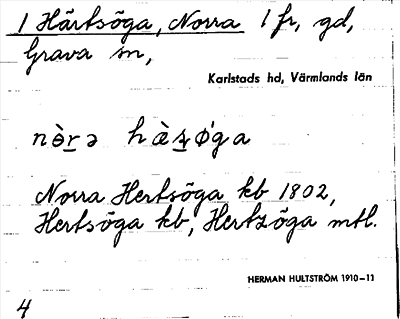 1 Härtsöga, Norra 1 fr, gd,
Grava sn,
Karlstads hd, Värmlands län
nὸ̱rə hàs̱ǿga
Norra Hertsöga kb 1802,
Hertsöga kb, Hertzöga mtl.
HERMAN HULTSTRÖM 1910–11
4